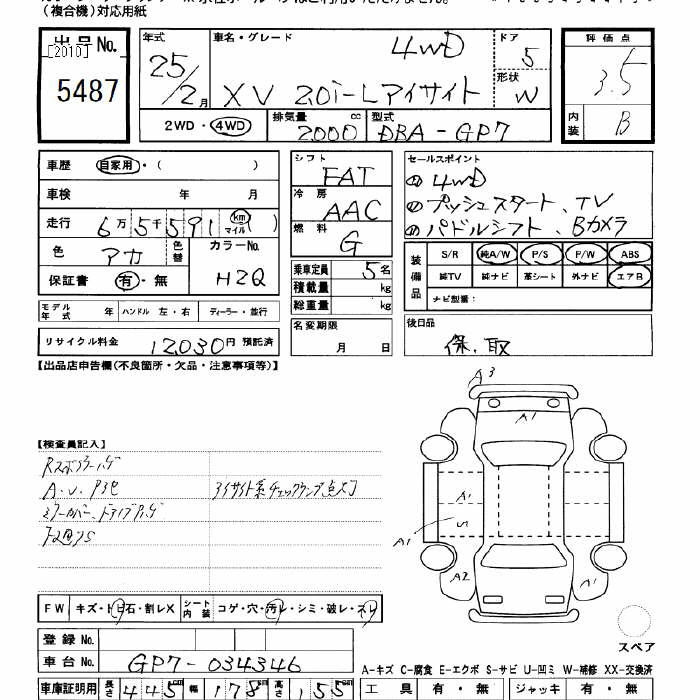 (複合機)対応用紙
出品No.
[2010]
5487
年式 車名・グレード 4WD ドア 5
25/2月 XV 2.0i-Lアイサイト 形状 W
2WD・4WD 排気量 2000 cc 型式 DBA-GP7
評価点 3.5
内装 B
車歴 自家用・( )
車検 年 月
走行 6万5千591 km マイル ( )
色 アカ 色替 カラーNo. H2Q
保証書 有・無
モデル年式 年 ハンドル 左・右 ディーラー・並行
リサイクル料金 12,030円 預託済
シフト FAT
冷房 AAC
燃料 G
乗車定員 5名
積載量 kg
総重量 kg
名変期限 月 日
セールスポイント
4WD
プッシュスタート、TV
パドルシフト、Bカメラ
装備品 S/R 純A/W P/S P/W ABS
純TV 純ナビ 革シート 外ナビ エアB
ナビ型番:
後日品
保、取
【出品店申告欄(不良箇所・欠品・注意事項等)】
【検査員記入】
A・U・P3色
アイサイト系チェックランプ点灯
A3
A1
A1
U
A1
A2
A1
スペア
FW キズ・トビ石・割レX シート内装 コゲ・穴・汚レ・シミ・破レ・スレ
登録No.
車台No. GP7-034346
A-キズ C-腐食 E-エクボ S-サビ U-凹ミ W-補修 XX-交換済
車庫証明用 長さ 445cm 幅 178cm 高さ 155cm
工具 有・無 ジャッキ 有・無